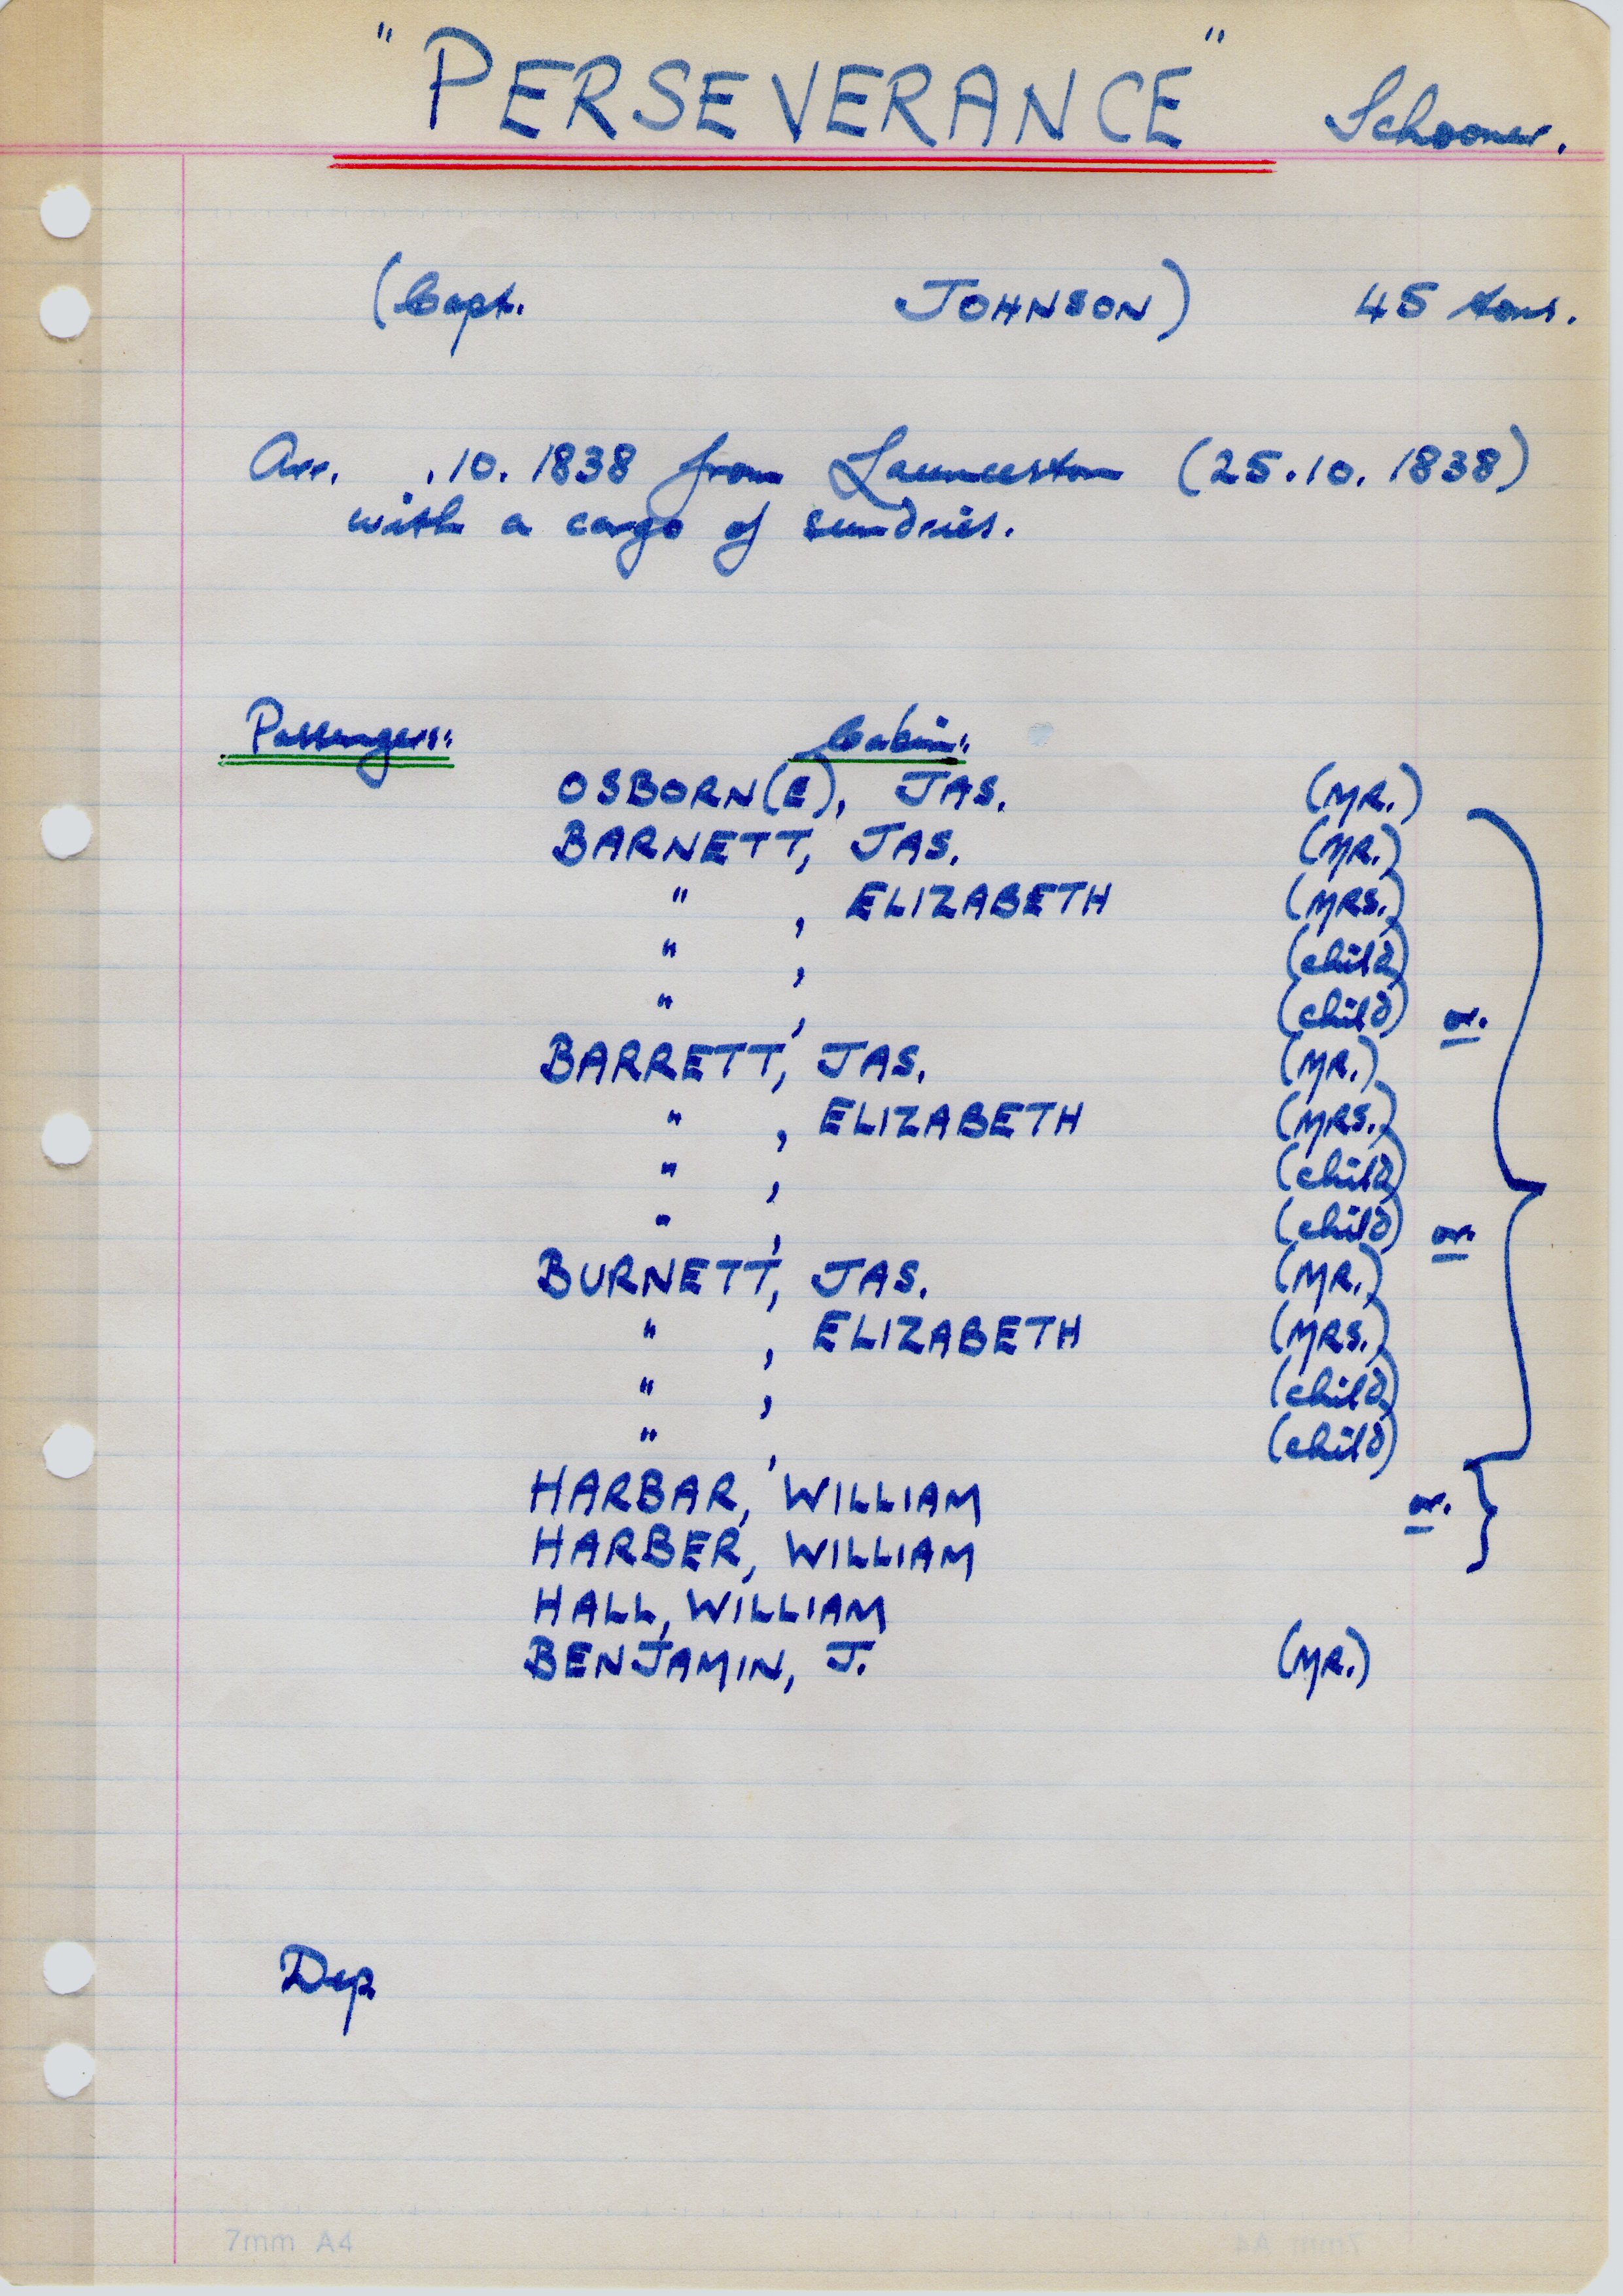 "PERSEVERANCE" Schooner.
(Capt. JOHNSON) 45 tons.
Arr. .10.1838 from Launceston (25.10.1838)
with a cargo of sundries.
Passengers: Cabin:
OSBORN(E), JAS. (MR.)
BARNETT, JAS. (MR.)
" , ELIZABETH (MRS.)
" , (child)
" , (child) or.
BARRETT, JAS. (MR.)
" , ELIZABETH (MRS.)
" , (child)
" , (child) or.
BURNETT, JAS. (MR.)
" , ELIZABETH (MRS.)
" , (child)
" , (child)
HARBAR, WILLIAM or.
HARBER, WILLIAM
HALL, WILLIAM
BENJAMIN, J. (MR.)
Dep
7mm A4